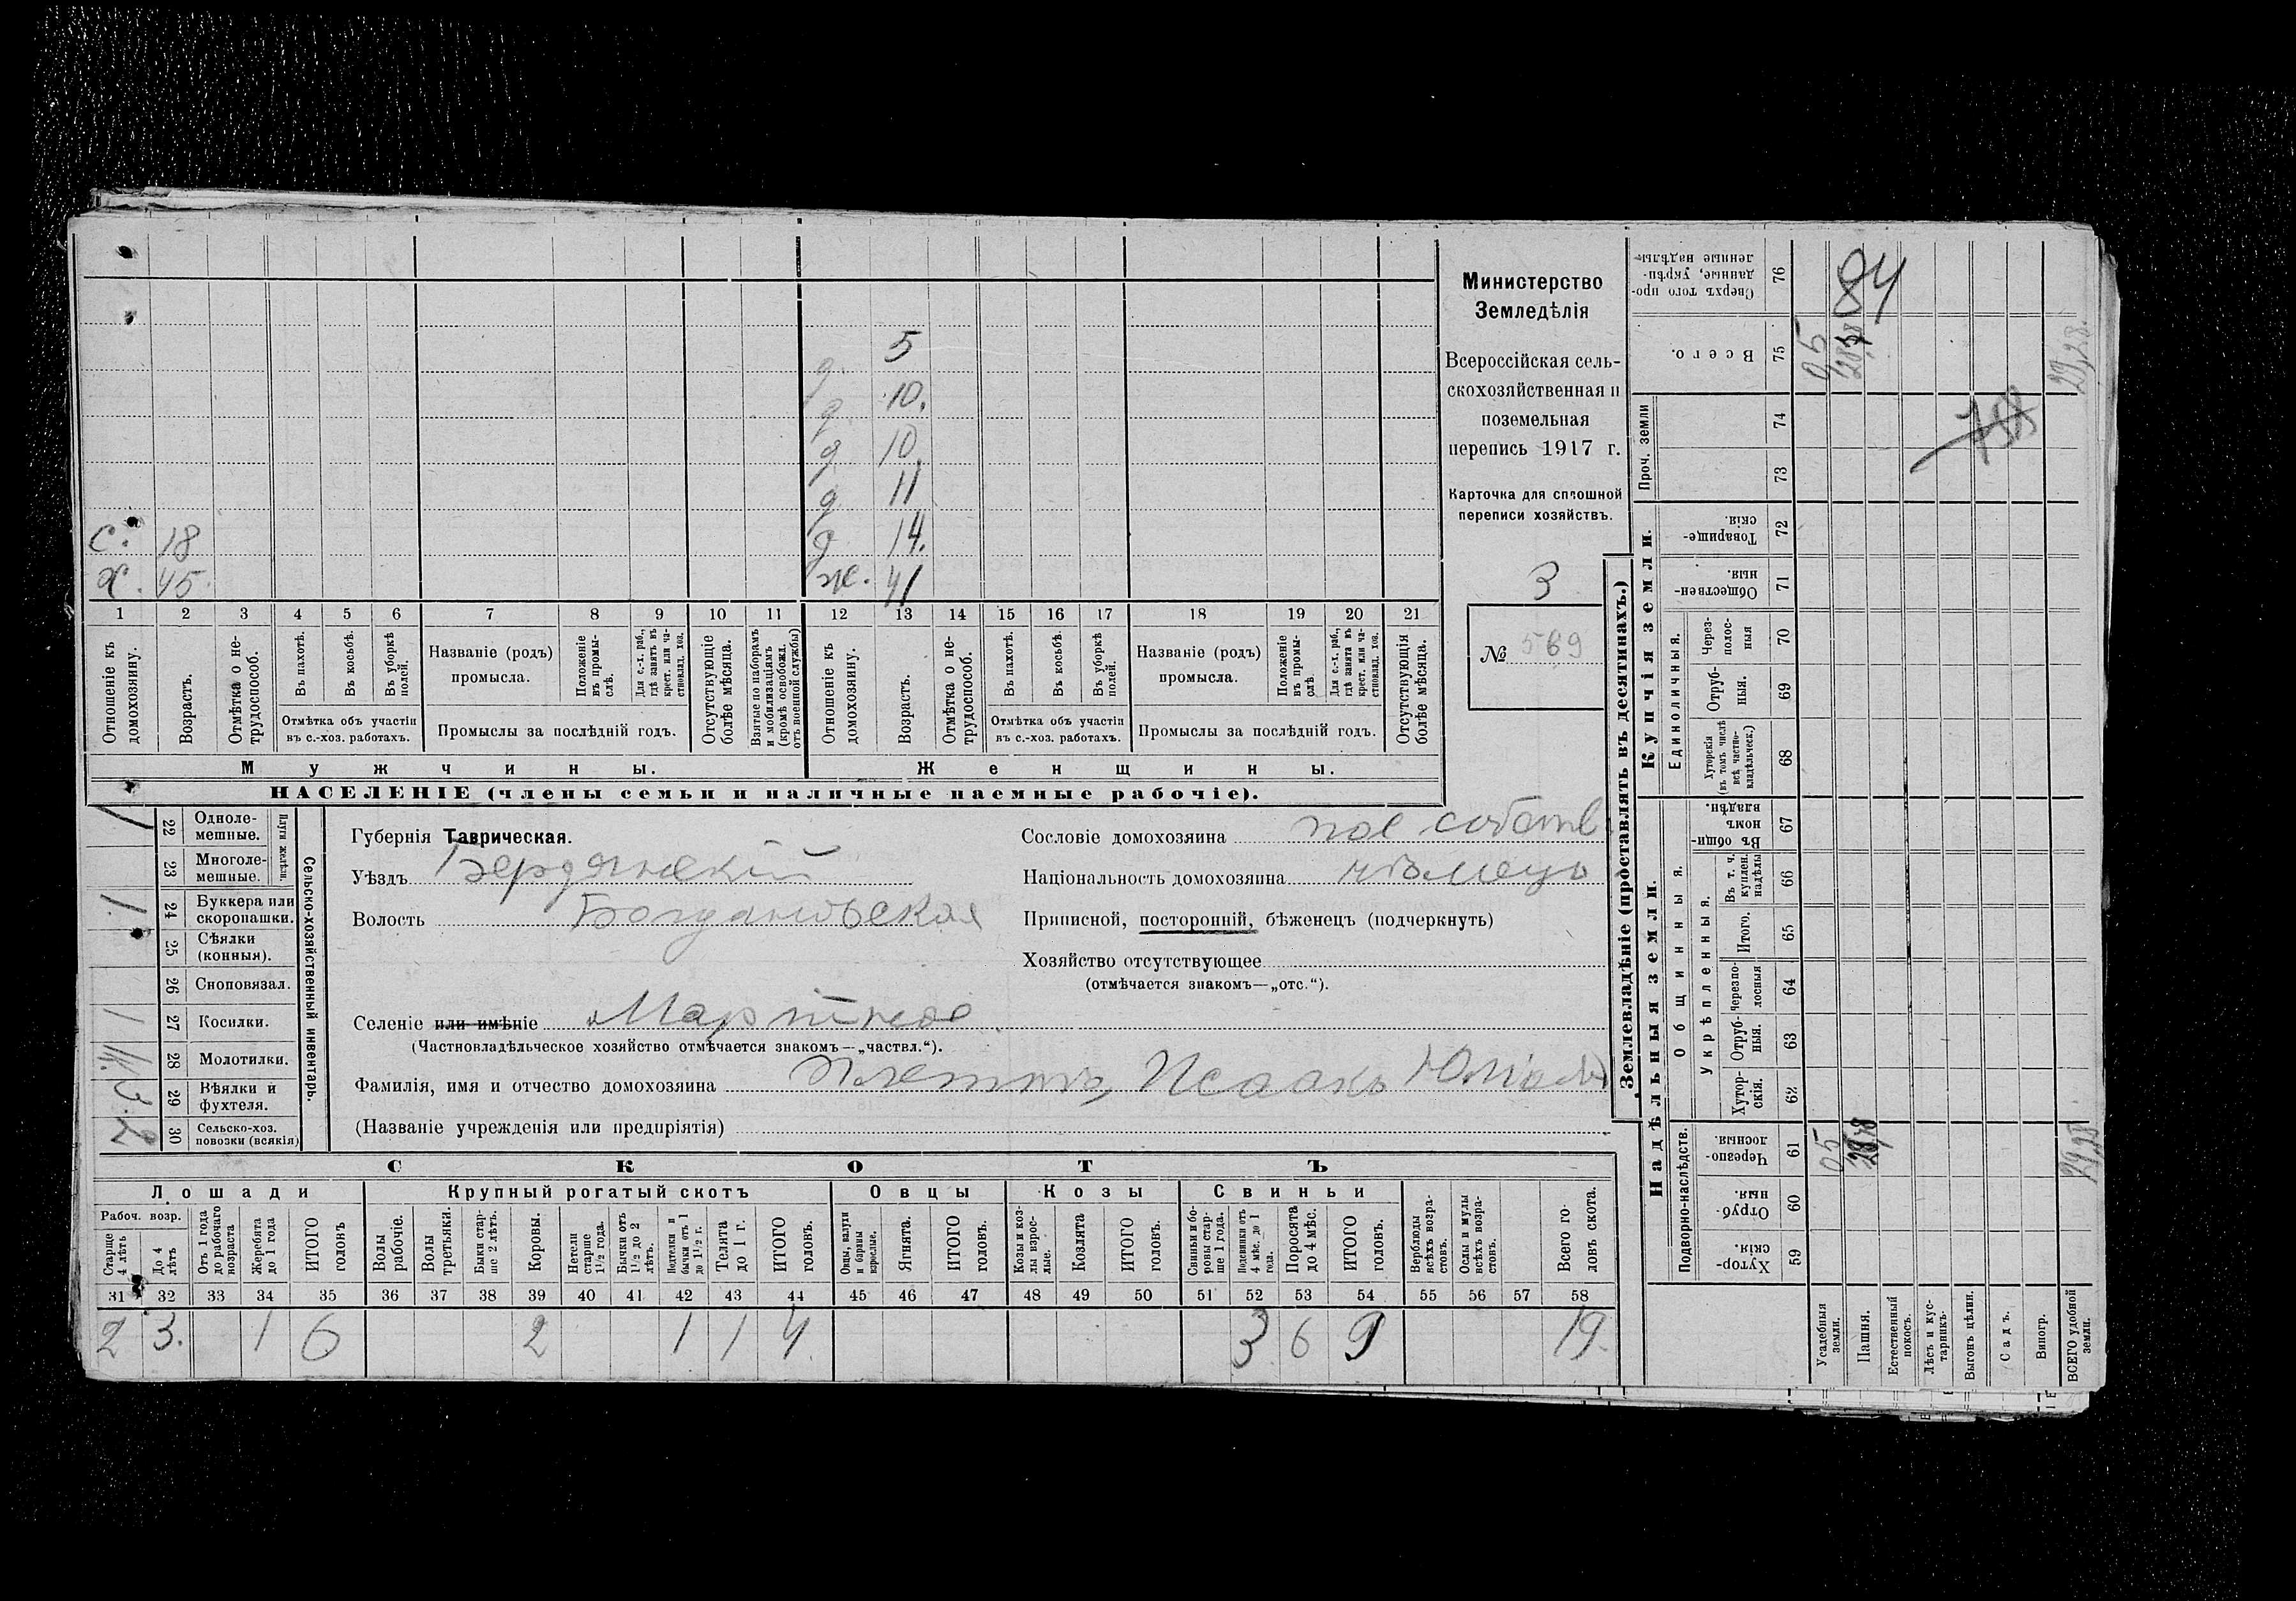 5
д. 10.
д. 10.
д. 11
с. 18
д. 14.
х. 45.
ж. 41
1 2 3 4 5 6 7 8 9 10 11 12 13 14 15 16 17 18 19 20 21
Отношеніе къ домохозяину.
Возрастъ.
Отмѣтка о не-трудоспособ.
Въ пахотѣ.
Въ косьбѣ.
Въ уборкѣ полей.
Отмѣтка объ участіи
въ с.-хоз. работахъ.
Названіе (родъ)
промысла.
Положеніе въ промы-слѣ.
Для с.-х. раб., гдѣ занятъ въ крест. или ча-стновлад. хоз.
Промыслы за послѣдній годъ.
Отсутствующіе болѣе мѣсяца.
Взятые по наборамъ и мобилизаціямъ (кромѣ освобожд. отъ военной службы)
Отношеніе къ домохозяину.
Возрастъ.
Отмѣтка о не-трудоспособ.
Въ пахотѣ.
Въ косьбѣ.
Въ уборкѣ полей.
Отмѣтка объ участіи
въ с.-хоз. работахъ.
Названіе (родъ)
промысла.
Положеніе въ промы-слѣ.
Для с.-х. раб., гдѣ занята въ крест. или ча-стновлад. хоз.
Промыслы за послѣдній годъ.
Отсутствующія болѣе мѣсяца.
Мужчины.
Женщины.
НАСЕЛЕНІЕ (члены семьи и наличные наемные рабочіе).
Министерство
Земледѣлія
Всероссійская сель-
скохозяйственная и
поземельная
перепись 1917 г.
Карточка для сплошной
переписи хозяйствъ.
3
№ 569
22 Одноле-мешные.
23 Многоле-мешные.
Плуги желѣзн.
24 Буккера или скоропашки.
25 Сѣялки (конныя).
26 Сноповязал.
27 Косилки.
28 Молотилки.
29 Вѣялки и фухтеля.
30 Сельско-хоз. повозки (всякія)
Сельско-хозяйственный инвентарь.
Губернія Таврическая.
Уѣздъ Бердянскій
Волость Богдановская
Селеніе или имѣніе
(Частновладѣльческое хозяйство отмѣчается знакомъ—„частвл.“).
Фамилія, имя и отчество домохозяина Исаакъ
(Названіе учрежденія или предпріятія)
Сословіе домохозяина пос собств
Національность домохозяина нѣмецъ
Приписной, посторонній, бѣженецъ (подчеркнуть)
Хозяйство отсутствующее
(отмѣчается знакомъ—„отс.“).
СКОТЪ
Лошади
Крупный рогатый скотъ
Овцы
Козы
Свиньи
Рабоч. возр.
Старше 4 лѣтъ
До 4 лѣтъ
Отъ 1 года до рабочаго возраста
Жеребята до 1 года
ИТОГО головъ
Волы рабочіе.
Волы третьяки.
Быки стар-ше 2 лѣтъ.
Коровы.
Нетели старше 1½ года.
Бычки отъ 1½ до 2 лѣтъ.
Подтелки и бычки отъ 1 до 1½ г.
Телята до 1 г.
ИТОГО головъ.
Овцы, валухи и бараны взрослые.
Ягнята.
ИТОГО головъ.
Козы и коз-лы взрос-лые.
Козлята
ИТОГО головъ.
Свиньи и бо-ровы стар-ше 1 года.
Подсвинки отъ 4 мѣс. до 1 года.
Поросята до 4 мѣс.
ИТОГО головъ.
Верблюды всѣхъ возра-стовъ.
Ослы и мулы всѣхъ возра-стовъ.
Всего го-ловъ скота.
31 32 33 34 35 36 37 38 39 40 41 42 43 44 45 46 47 48 49 50 51 52 53 54 55 56 57 58
2 3. 1 6 2 1 1 4. 3 6 9 19.
Землевладѣніе (проставлять въ десятинахъ.)
Купчія земли.
Надѣльныя земли.
Сверхъ того про-данные, укрѣп-ленные надѣлы 76
84
Всего. 75
05
29,28.
Проч. земли 74 73
Товарище-скія. 72
Обществен-ныя. 71
Единоличныя.
Через-полос-ныя 70
Отруб-ныя. 69
Хуторскія (въ томъ числѣ всѣ частно-владѣльческ.) 68
Общинныя.
Въ общин-номъ владѣн. 67
Укрѣпленныя.
Въ т. ч. куплен. надѣлы 66
Итого. 65
Черезпо-лосныя 64
Отруб-ныя. 63
Хутор-скія. 62
Подворно-наслѣдств.
Черезпо-лосныя. 61
05
29,28
Отруб-ныя. 60
Хутор-скія. 59
Усадебныя земли.
Пашня.
Естественный покосъ.
Лѣсъ и кус-тарникъ.
Выгонъ цѣлин.
Садъ.
Виногр.
ВСЕГО удобной земли.